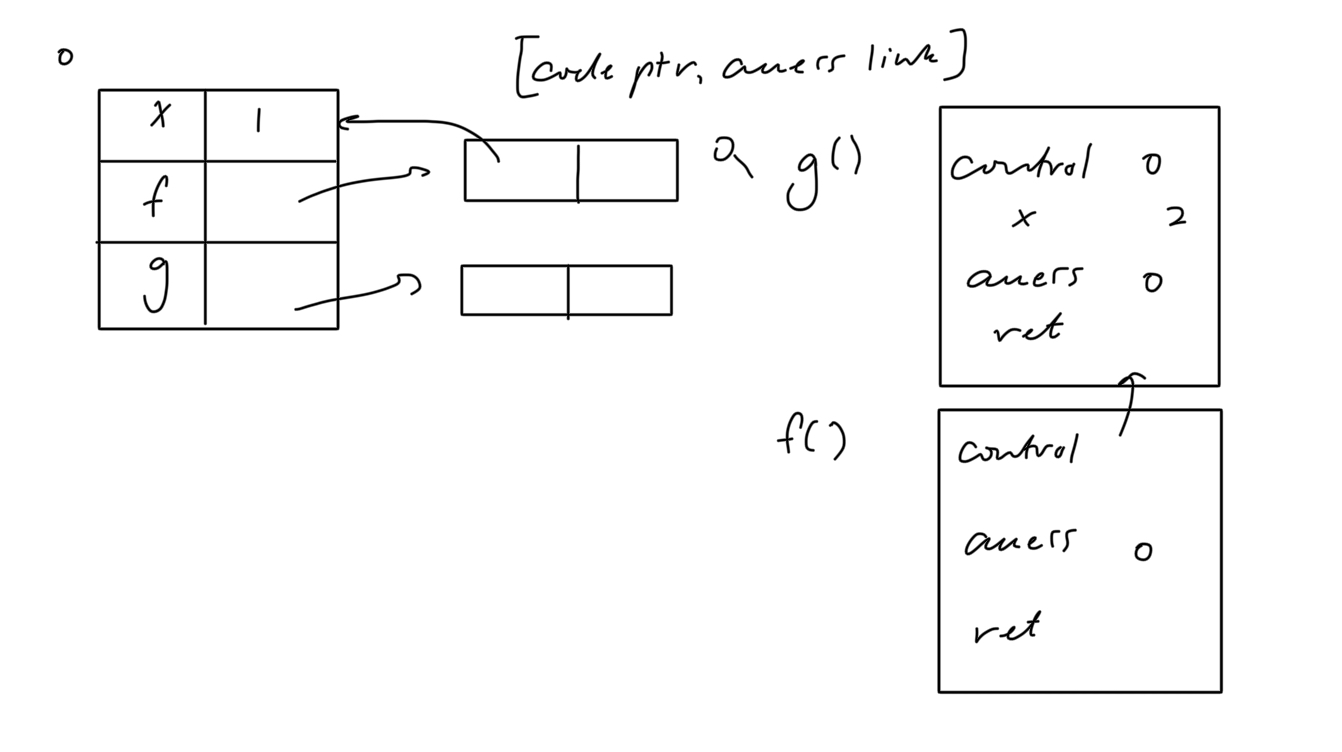 0
[code ptr, access link]
x 1
f
g
0 g()
control 0
x 2
access 0
ret
f()
control
access 0
ret